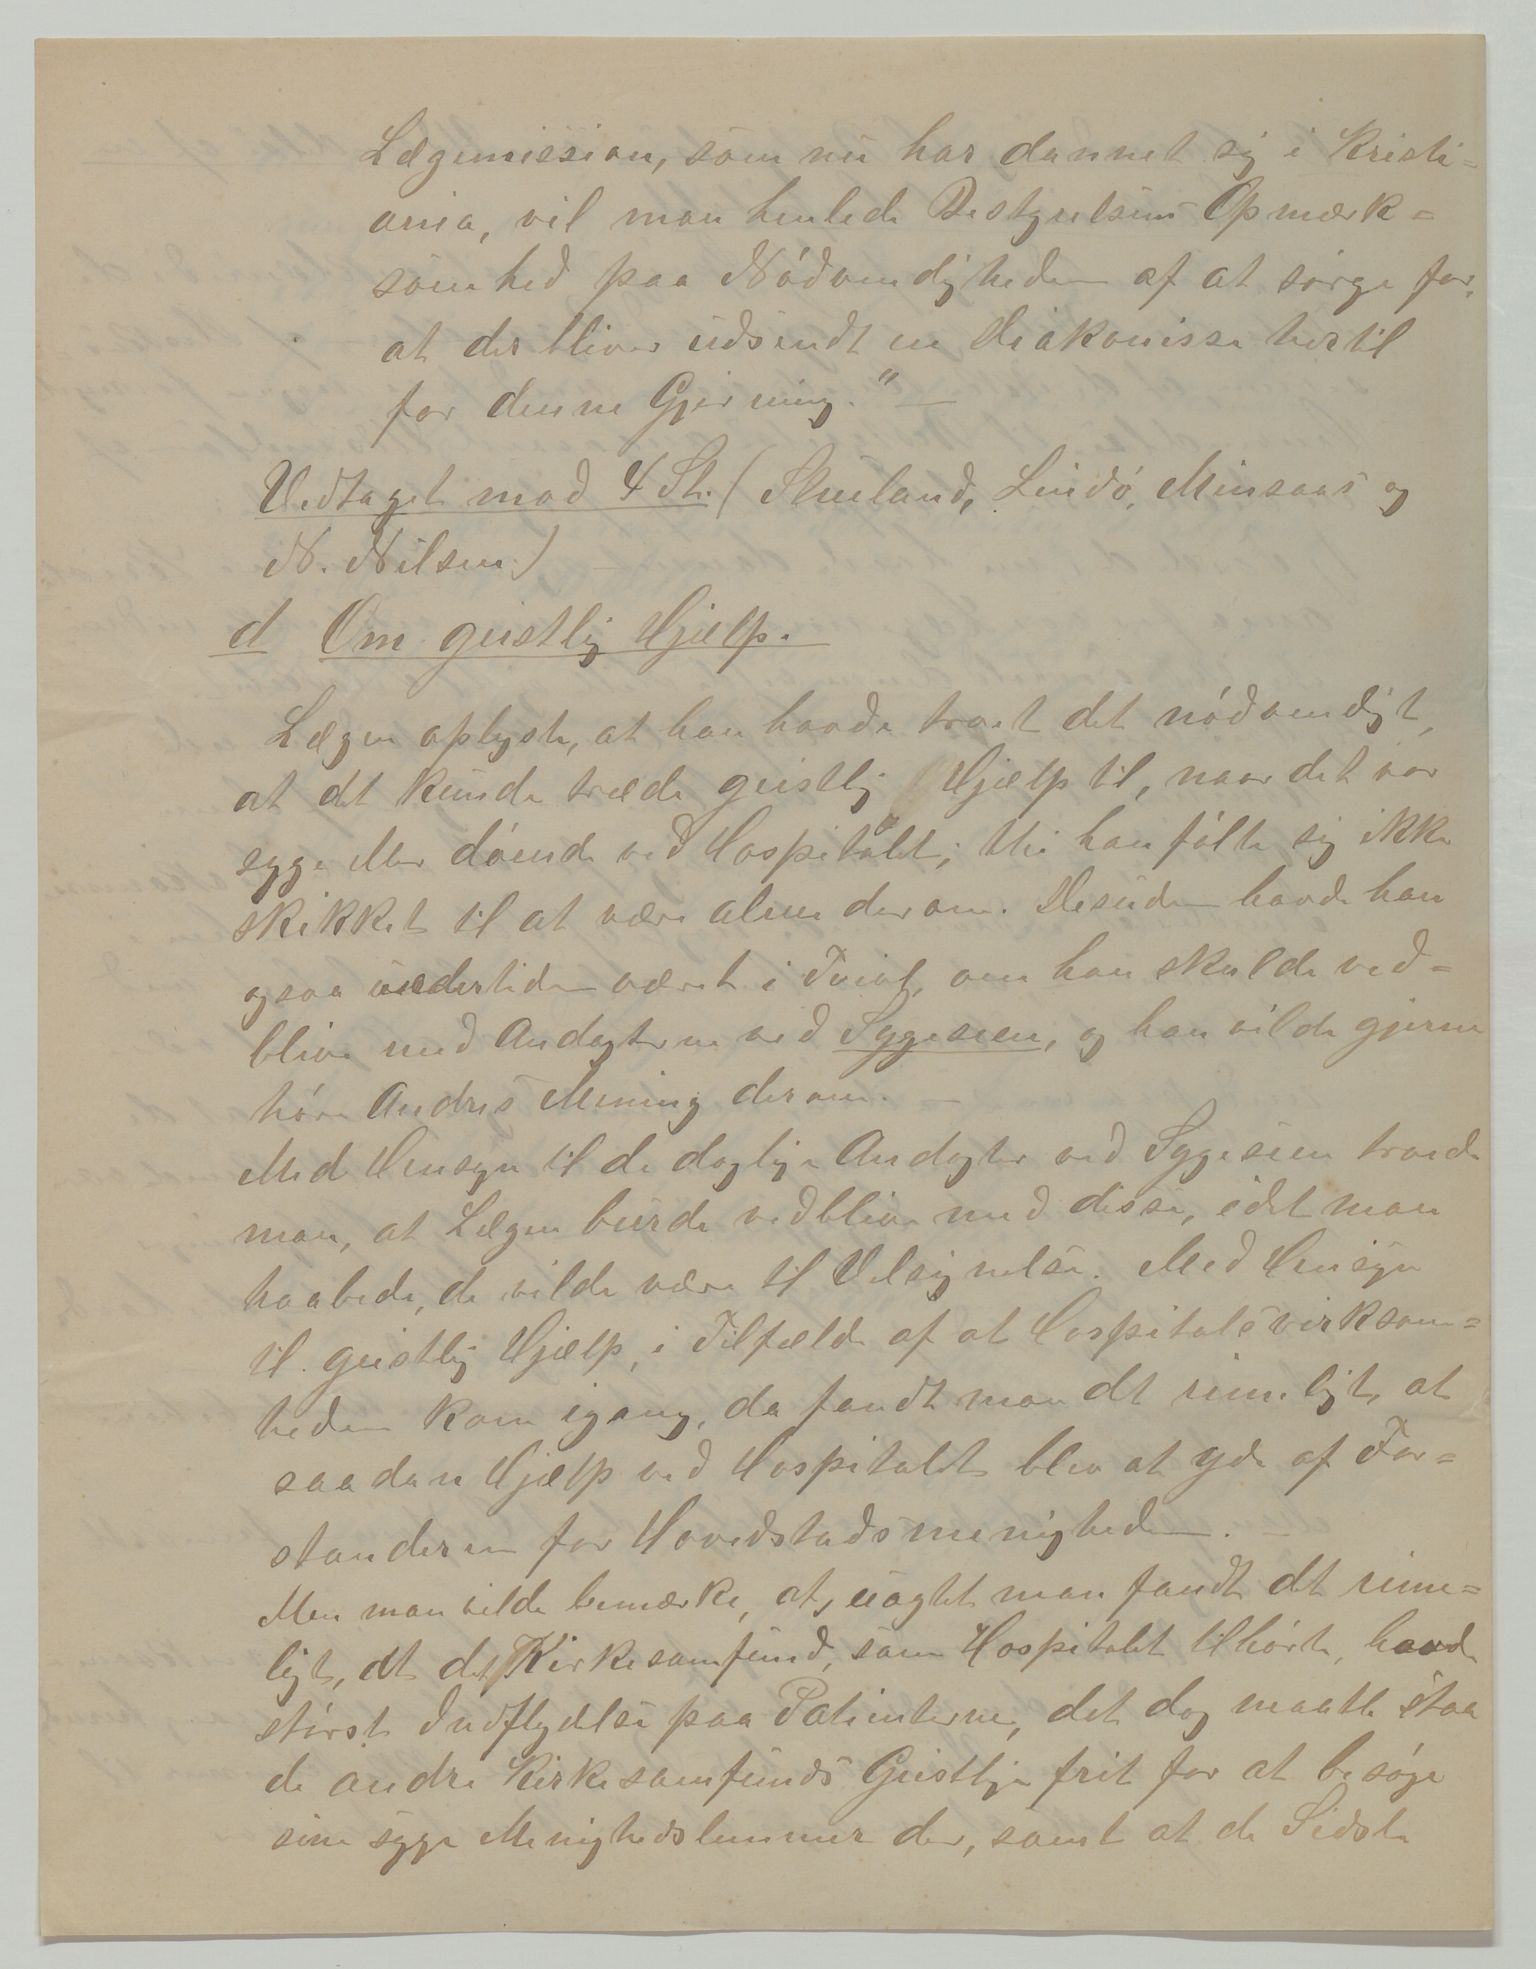 Lægemission, som nu har dannet sig i Kristi=
ania, vil man henlede Bestyrelsens Opmærk=
somhed paa Nödvendigheden af at sörge for,
at der bliver udsendt en Diakonisse hertil
for denne Gjerning." —
Vedtaget mod 4 St. (Skuland, Lindö, Minsaas og
N. Nilsen.)
d Om geistlig Hjælp.
Lægen oplyste, at han havde troet det nödvendigt,
at det kunde træde geistlig Hjælp til, naar det var
syge eller döende ved Hospitalet; thi han fölte sig ikke
skikket til at være alene derom. Desuden havde han
ogsaa undertiden været i Tvivl, om han skulde ved=
blive med Andagterne ved Sygeseen, og han vilde gjerne
höre Andres Mening derom. —
Med Hensyn til de daglige Andagter ved Sygeseen troede
man, at Lægen burde vedblive med disse, idet man
haabede, de vilde være til Velsignelse. Med Hensyn
til geistlig Hjælp, i Tilfælde af at Hospitalsvirksom=
heden kom igang, da fandt man det rimeligt, at
saadan Hjælp ved Hospitalet blev at yde af For=
standeren for Hovedstadsmenigheden. —
Men man vilde bemærke, at, uagtet man fandt det rime=
ligt, at det Kirkesamfund, som Hospitalet tilhörte, havde
störst Indflydelse paa Patienterne, det dog maatte staa
de andre Kirkesamfunds Geistlige frit for at besöge
sine syge Menighedslemmer der, samt at de Sidste